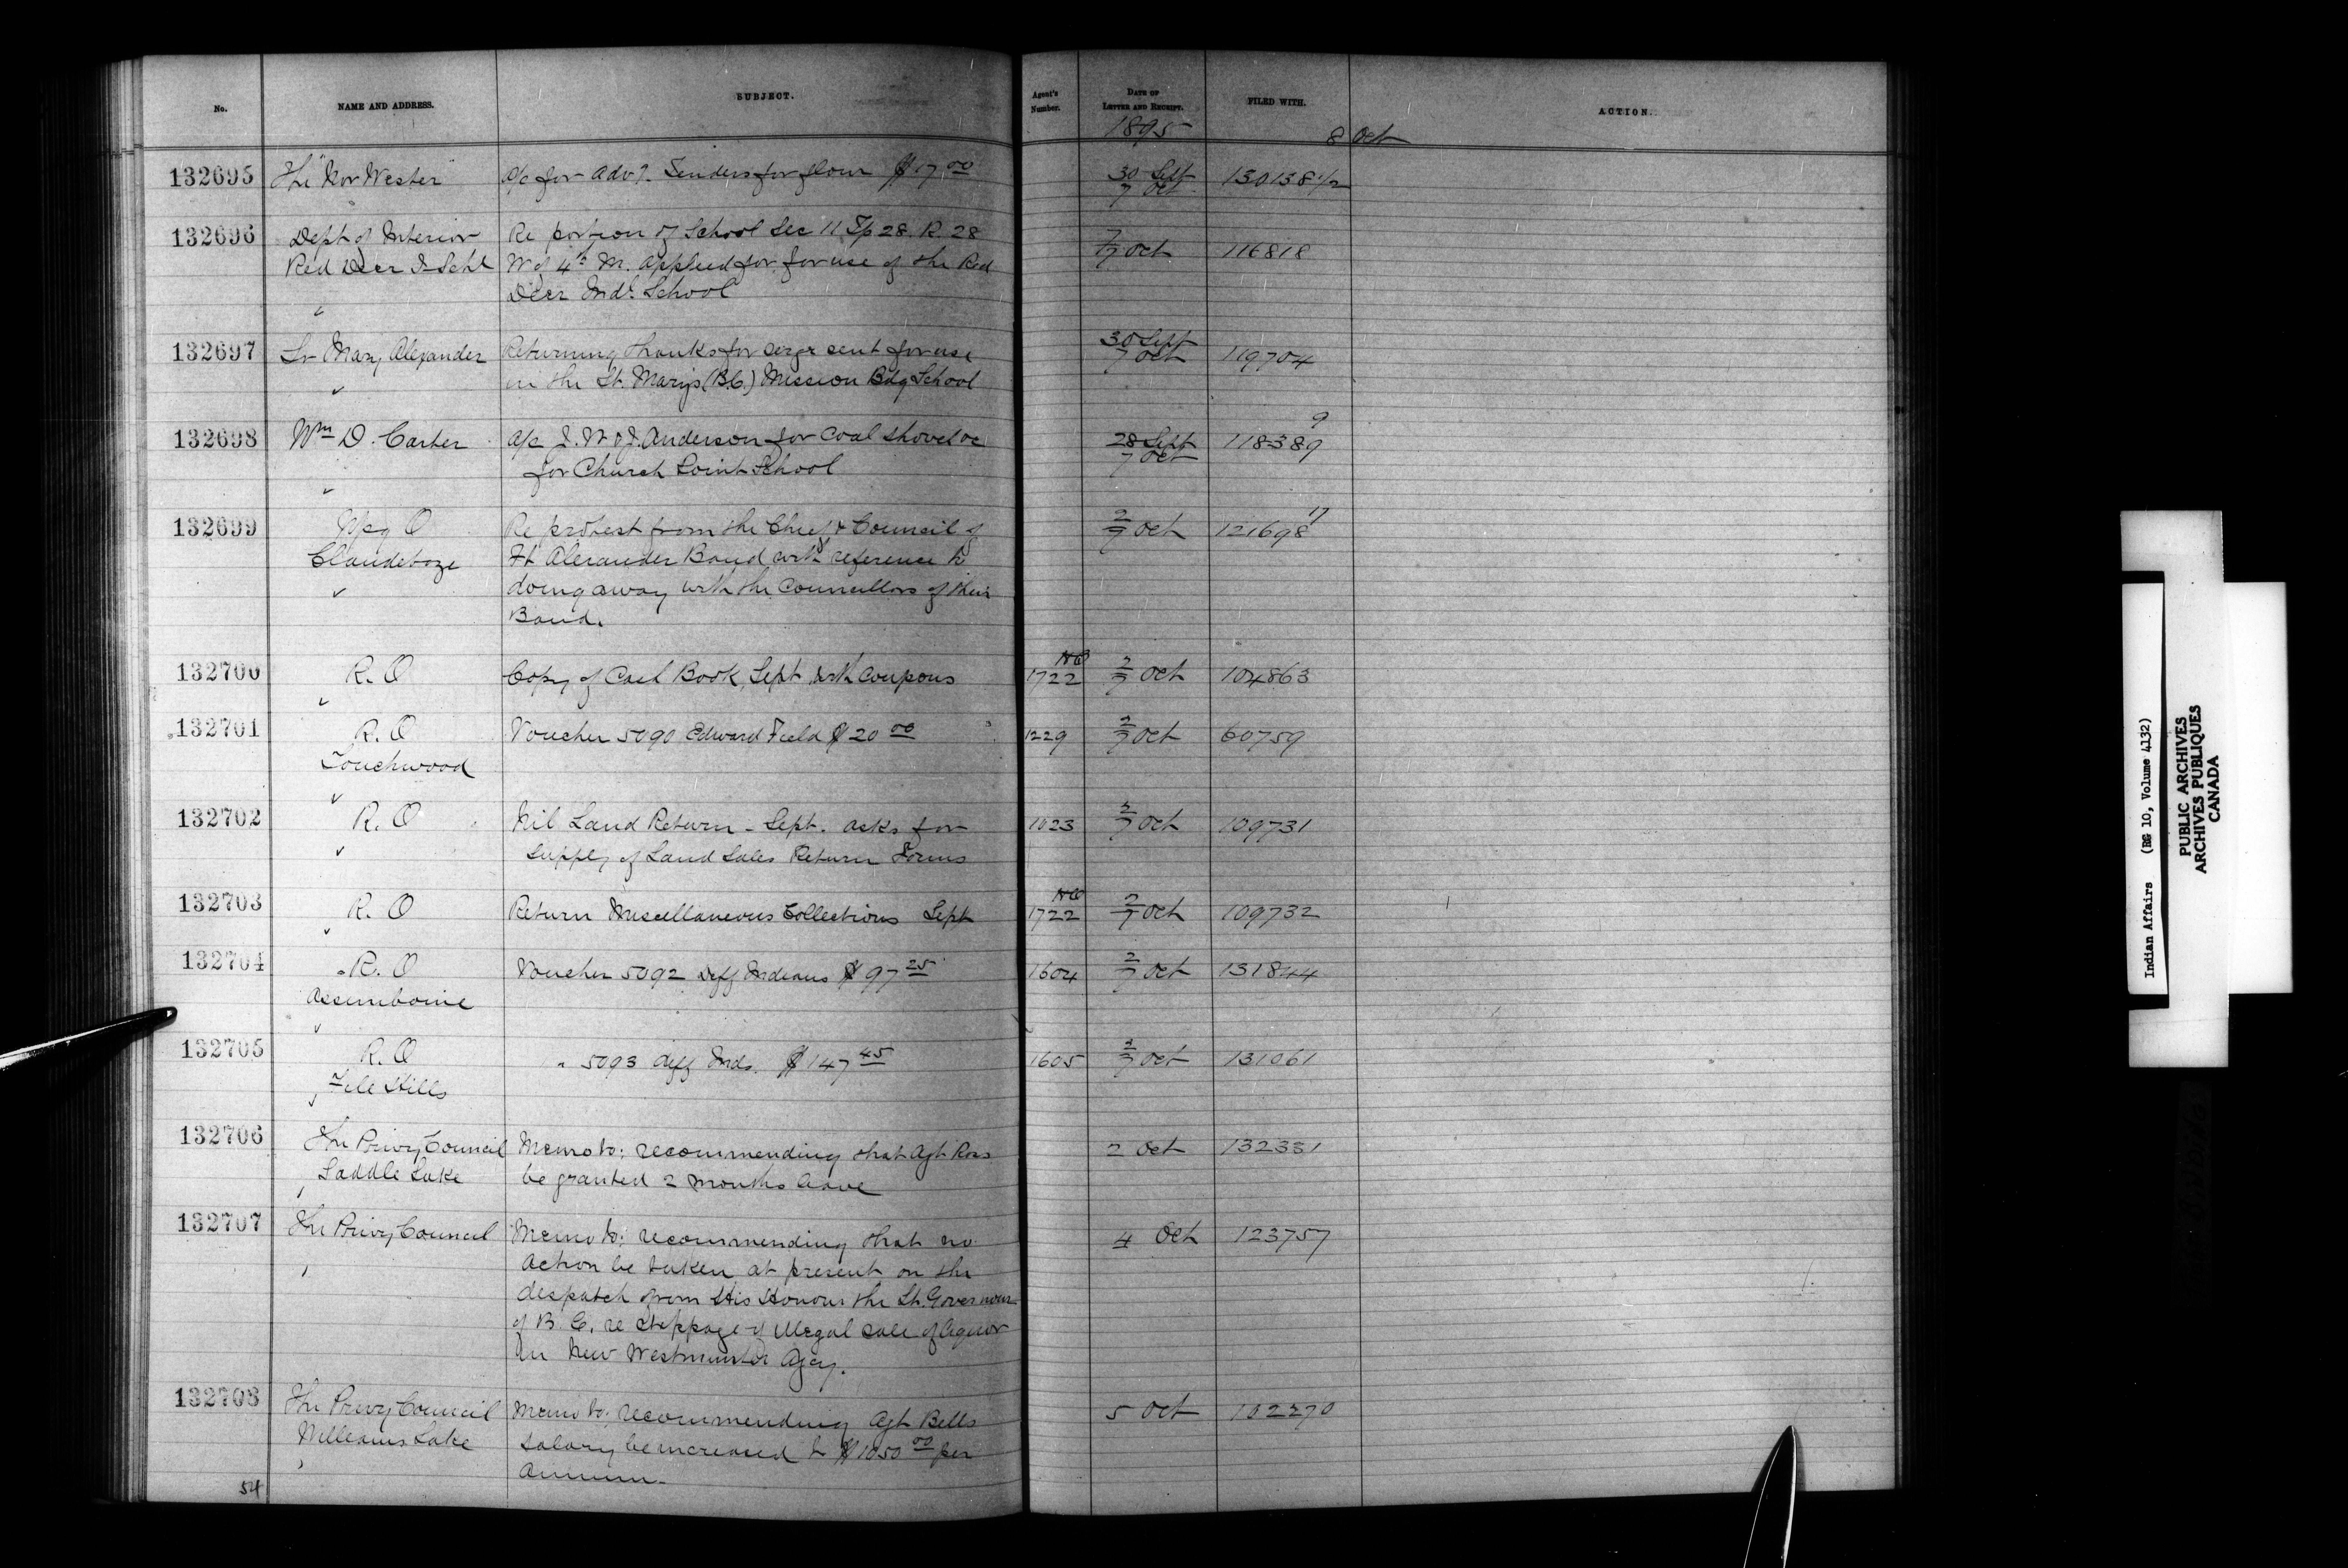 No. NAME AND ADDRESS. SUBJECT. Agent's Number. DATE OF LETTER AND RECEIPT. FILED WITH. ACTION.
1895 8 Oct
132695 The "Nor Wester" a/c for Advt. Tenders for flour $17 00 30 Sept 7 Oct 130138 1/2
132696 Dept of Interior Re portion of School Sec 11 Tp 28. R. 28 7/7 Oct 116818
Red Deer I Schl W of 4th M. applied for for use of the Red
Deer Indl School
132697 Sr Mary Alexander Returning thanks for serge sent for use 30 Sept 7 Oct 119704
in the St. Mary's (B.C.) Mission Bdg School
132698 Wm D. Carter a/c J. W & J. Anderson for Coal shovel &c 28 Sept 7 Oct 118389 9
for Church Point School
132699 Wpg O Re protest from the Chief & Council of 2/7 Oct 121698 17
Clandeboye Ft Alexander Band with reference to
doing away with the Councillors of their
Band.
132700 R. O Copy of Cash Book, Sept with Coupons 1722 2/7 Oct 104863
132701 R. O Voucher 5090 Edward Field $20 00 1229 2/7 Oct 60759
Touchwood
132702 R. O Nil Land Return - Sept. asks for 1023 2/7 Oct 109731
supply of Land Sales Return Forms
132703 R. O Return Miscellaneous Collections Sept 1722 2/7 Oct 109732
132704 R. O Voucher 5092 Diff Indians $97 25 1604 2/7 Oct 131844
Assiniboine
132705 R. O " 5093 diff Inds. $147 45 1605 2/7 Oct 131061
File Hills
132706 The Privy Council Memo to: recommending that Agt Ross 2 Oct 132331
Saddle Lake be granted 2 months leave
132707 The Privy Council Memo to: recommending that no 4 Oct 123757
action be taken at present on the
despatch from His Honour the Lt. Governour
of B. C. re stoppage of illegal sale of liquor
in New Westminster Agcy.
132708 The Privy Council Memo to: recommending Agt Bells 5 Oct 102270
Williams Lake salary be increased to $1050 00 per
annum.
54
Indian Affairs (RG 10, Volume 4132)
PUBLIC ARCHIVES
ARCHIVES PUBLIQUES
CANADA